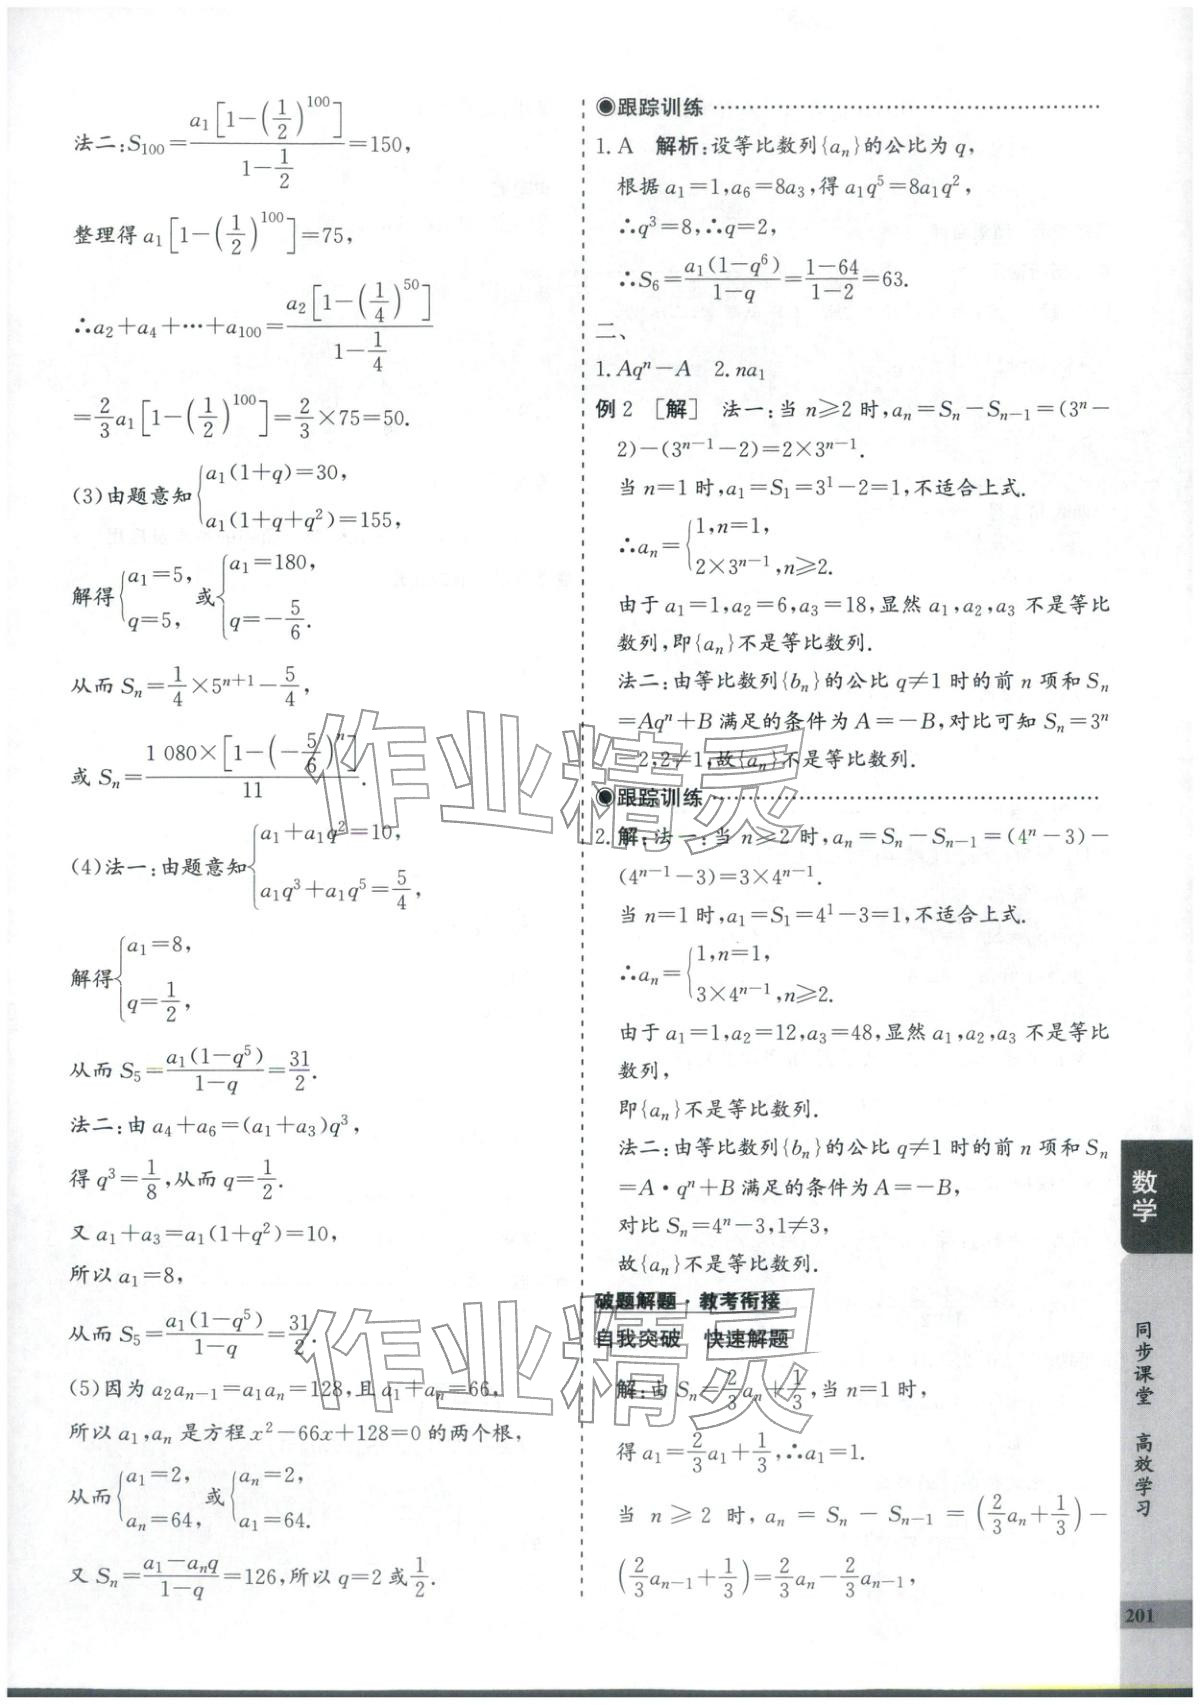 法二:S₁₀₀=a₁[1-(1/2)¹⁰⁰]/(1-1/2)=150,
整理得 a₁[1-(1/2)¹⁰⁰]=75,
∴a₂+a₄+⋯+a₁₀₀=a₂[1-(1/4)⁵⁰]/(1-1/4)
=2/3a₁[1-(1/2)¹⁰⁰]=2/3×75=50.
(3)由题意知{a₁(1+q)=30,
a₁(1+q+q²)=155,
解得{a₁=5, q=5, 或{a₁=180, q=-5/6.
从而 Sₙ=1/4×5ⁿ⁺¹-5/4,
或 Sₙ=1 080×[1-(-5/6)ⁿ]/11.
(4)法一:由题意知{a₁+a₁q²=10,
a₁q³+a₁q⁵=5/4,
解得{a₁=8,
q=1/2,
从而 S₅=a₁(1-q⁵)/(1-q)=31/2.
法二:由 a₄+a₆=(a₁+a₃)q³,
得 q³=1/8,从而 q=1/2.
又 a₁+a₃=a₁(1+q²)=10,
所以 a₁=8,
从而 S₅=a₁(1-q⁵)/(1-q)=31/2.
(5)因为 a₂aₙ₋₁=a₁aₙ=128,且 a₁+aₙ=66,
所以 a₁,aₙ 是方程 x²-66x+128=0 的两个根,
从而{a₁=2, aₙ=64, 或{aₙ=2, a₁=64.
又 Sₙ=(a₁-aₙq)/(1-q)=126,所以 q=2 或 1/2.
◉跟踪训练
1. A 解析:设等比数列{aₙ}的公比为 q,
根据 a₁=1,a₆=8a₃,得 a₁q⁵=8a₁q²,
∴q³=8,∴q=2,
∴S₆=a₁(1-q⁶)/(1-q)=(1-64)/(1-2)=63.
二、
1. Aqⁿ-A 2. na₁
例 2 [解] 法一:当 n≥2 时,aₙ=Sₙ-Sₙ₋₁=(3ⁿ-
2)-(3ⁿ⁻¹-2)=2×3ⁿ⁻¹.
当 n=1 时,a₁=S₁=3¹-2=1,不适合上式.
∴aₙ={1,n=1,
2×3ⁿ⁻¹,n≥2.
由于 a₁=1,a₂=6,a₃=18,显然 a₁,a₂,a₃ 不是等比
数列,即{aₙ}不是等比数列.
法二:由等比数列{bₙ}的公比 q≠1 时的前 n 项和 Sₙ
=Aqⁿ+B 满足的条件为 A=-B,对比可知 Sₙ=3ⁿ
-2,2≠1,故{aₙ}不是等比数列.
◉跟踪训练
2. 解:法一:当 n≥2 时,aₙ=Sₙ-Sₙ₋₁=(4ⁿ-3)-
(4ⁿ⁻¹-3)=3×4ⁿ⁻¹.
当 n=1 时,a₁=S₁=4¹-3=1,不适合上式.
∴aₙ={1,n=1,
3×4ⁿ⁻¹,n≥2.
由于 a₁=1,a₂=12,a₃=48,显然 a₁,a₂,a₃ 不是等比
数列,
即{aₙ}不是等比数列.
法二:由等比数列{bₙ}的公比 q≠1 时的前 n 项和 Sₙ
=A·qⁿ+B 满足的条件为 A=-B,
对比 Sₙ=4ⁿ-3,1≠3,
故{aₙ}不是等比数列.
破题解题·教考衔接
自我突破 快速解题
解:由 Sₙ=2/3aₙ+1/3,当 n=1 时,
得 a₁=2/3a₁+1/3,∴a₁=1.
当 n≥2 时,aₙ=Sₙ-Sₙ₋₁=(2/3aₙ+1/3)-
(2/3aₙ₋₁+1/3)=2/3aₙ-2/3aₙ₋₁,
数学
同步课堂 高效学习
201
作业精灵
作业精灵